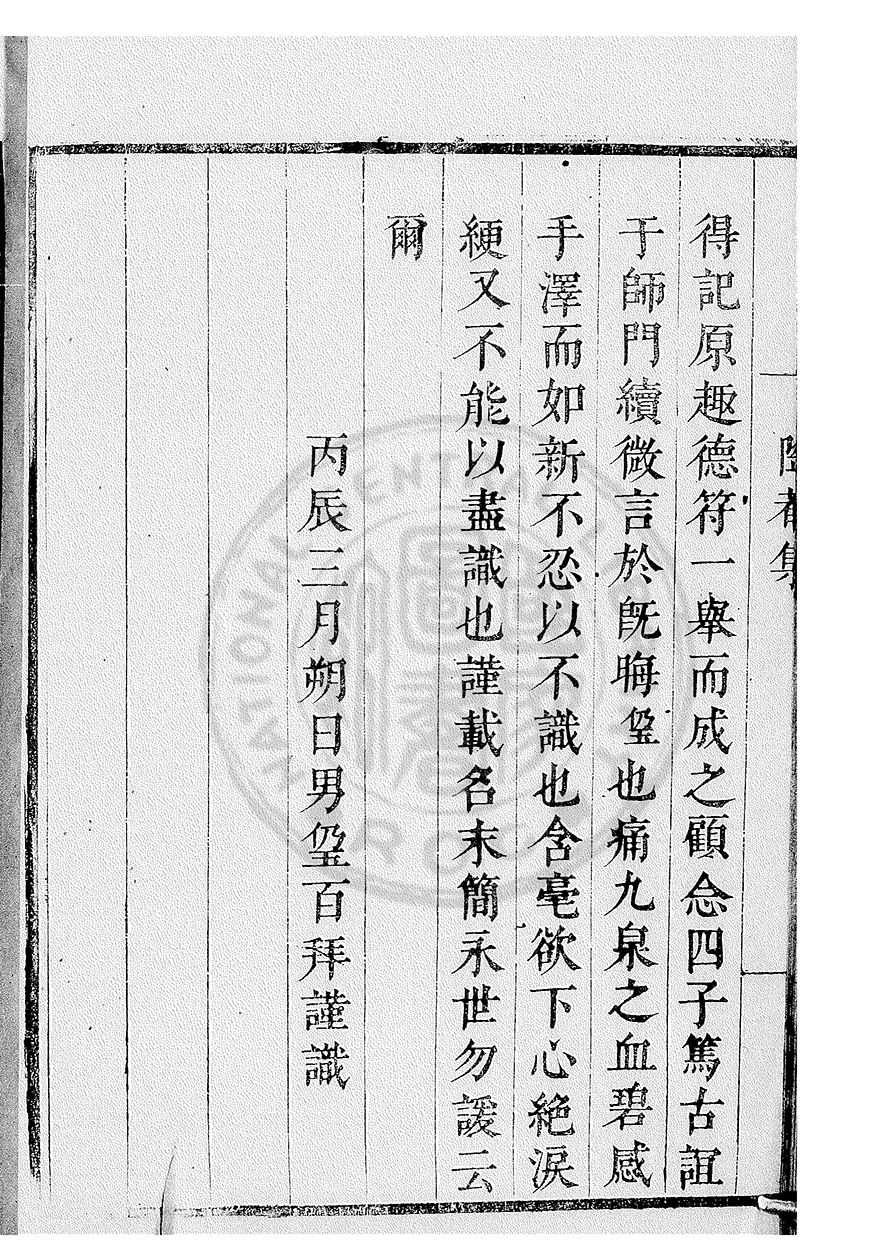 集
得記原趣德符一舉而成之顧念四子篤古誼
于師門續微言於旣晦也痛九泉之血碧感
手澤而如新不忍以不識也含毫欲下心絶淚
綆又不能以盡識也謹載名末簡永世勿諼云
爾
丙辰三月朔日男百拜謹識